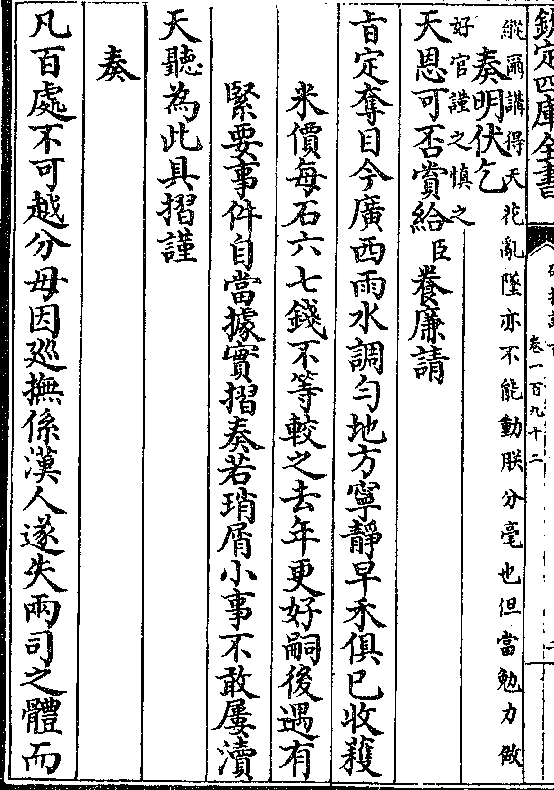 欽定四庫全書
卷一百九十二
縱爾講得天花亂墜亦不能動朕分毫也但當勉力做
奏明伏乞
好官謹之慎之
天恩可否賞給臣養廉請
旨定奪目今廣西雨水調勻地方寧靜早禾俱已收穫
米價每石六七錢不等較之去年更好嗣後遇有
緊要事件自當據實摺奏若瑣屑小事不敢屢瀆
天聽為此具摺謹
奏
凡百處不可越分毋因廵撫係漢人遂失兩司之體而